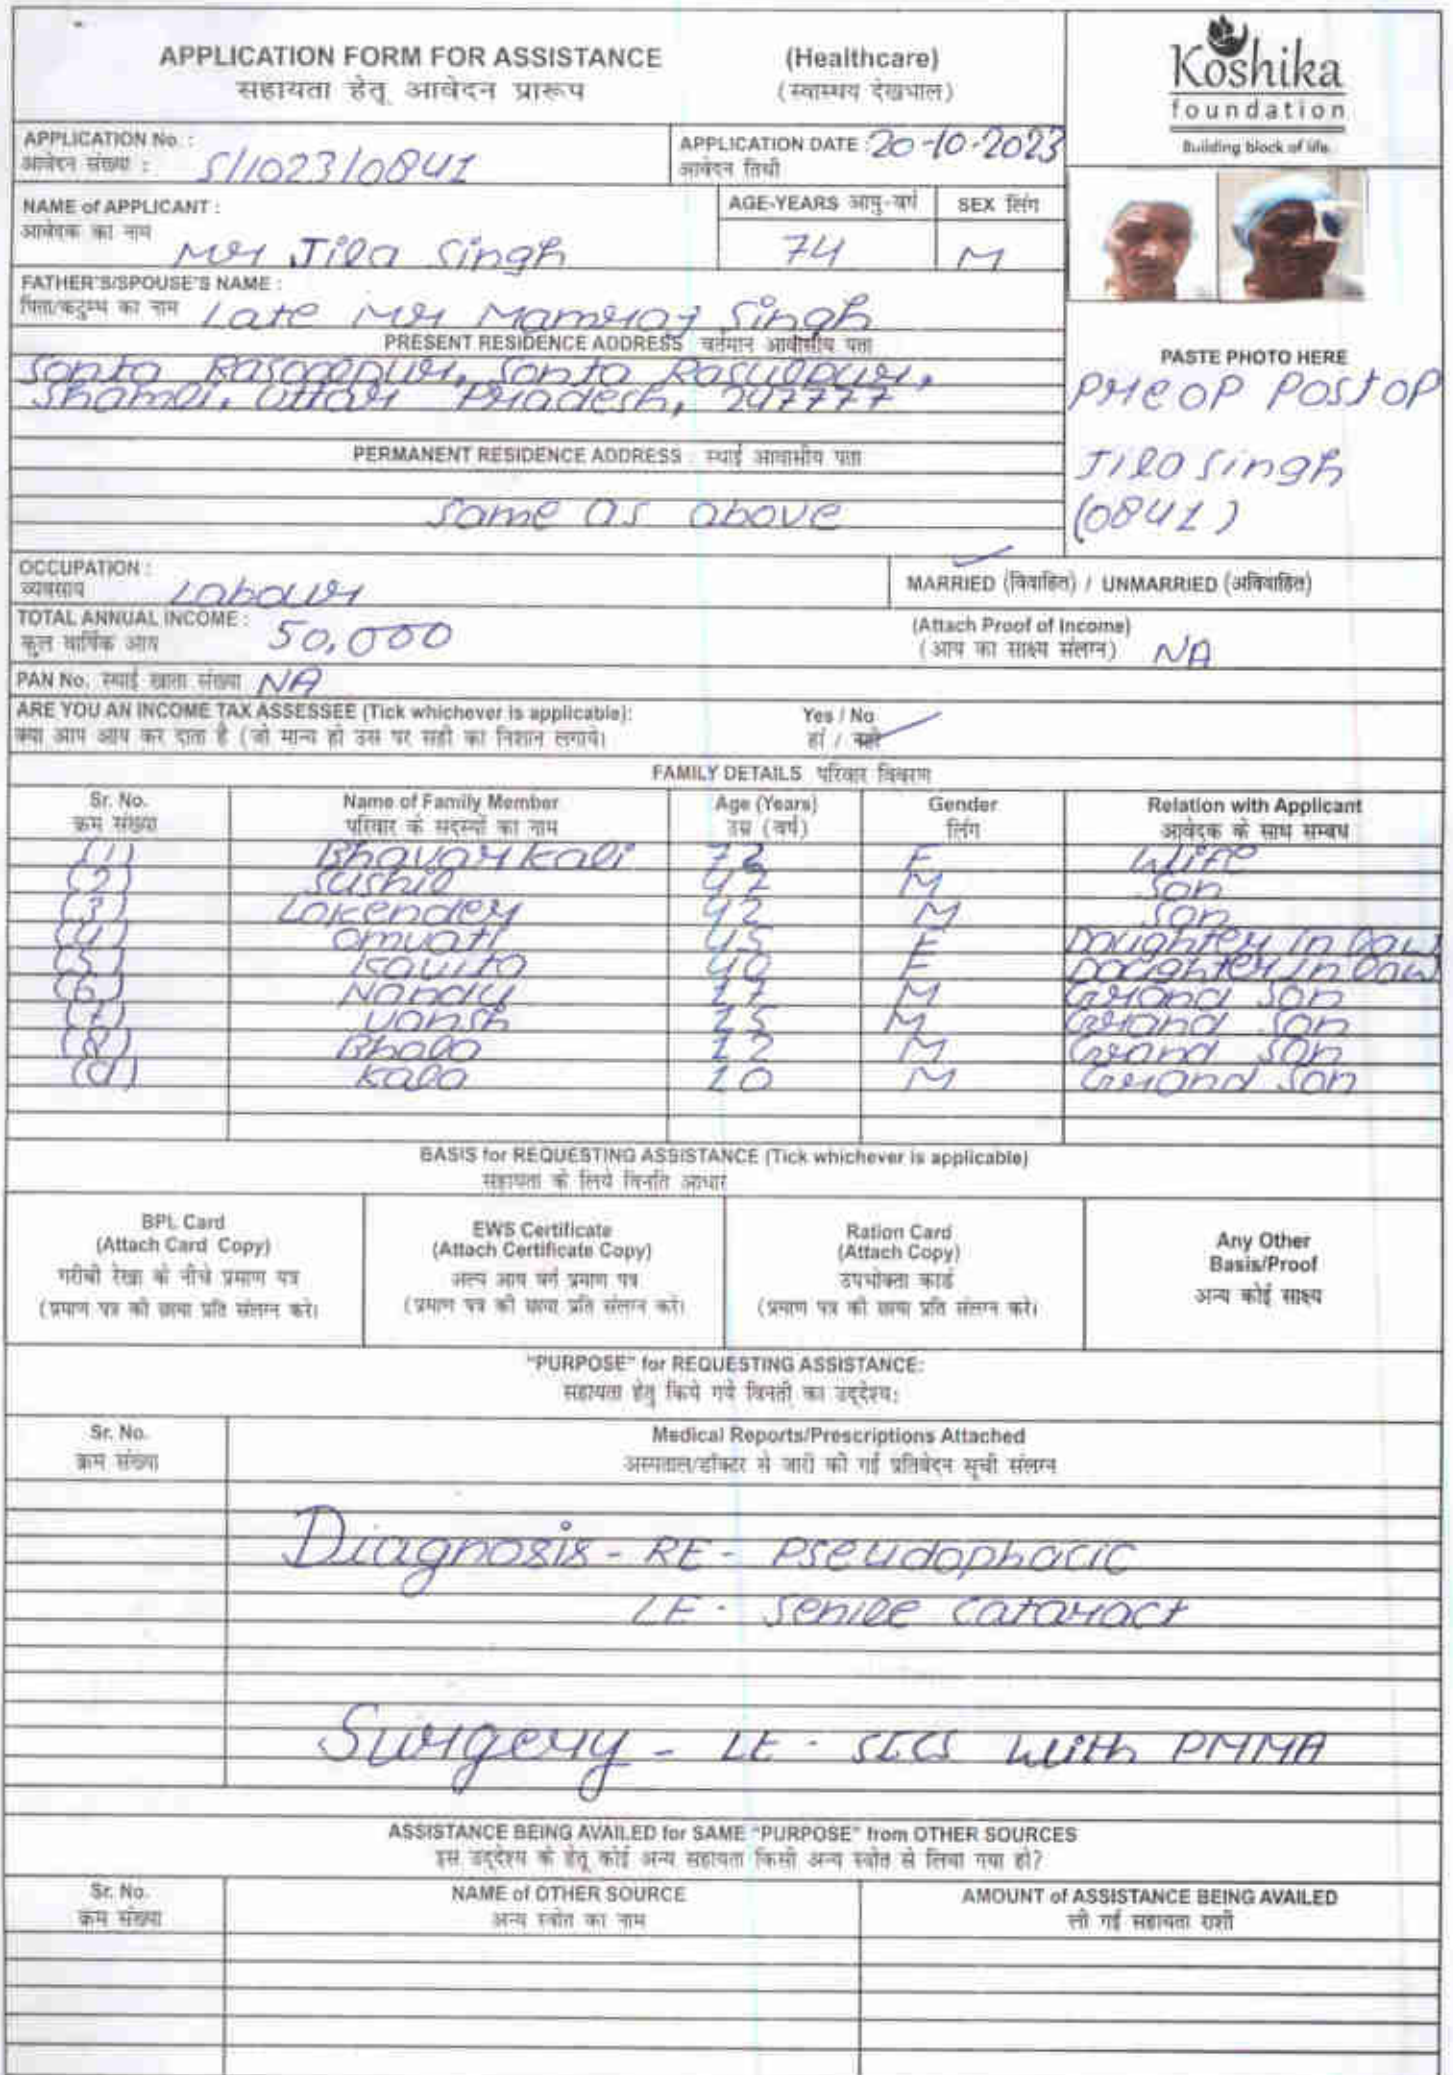 APPLICATION FORM FOR ASSISTANCE (Healthcare)
सहायता हेतू आवेदन प्रारूप (स्वास्थय देखभाल)
Koshika
foundation
Building block of life.
APPLICATION No. :
आवेदन संख्या : S/1023/0841
APPLICATION DATE : 20-10-2023
आवेदन तिथी
NAME of APPLICANT :
आवेदक का नाम Mr Jila Singh
AGE-YEARS आयु-वर्ष 74
SEX लिंग M
FATHER'S/SPOUSE'S NAME :
पिता/कटुम्ब का नाम Late Mr Mamraj Singh
PRESENT RESIDENCE ADDRESS वर्तमान आवासीय पता
Sonta Rasoolpur, Sonta Rasulpur,
Shamli, Uttar Pradesh, 247777
PASTE PHOTO HERE
Preop Postop
Jila Singh
(0841)
PERMANENT RESIDENCE ADDRESS : स्थाई आवासीय पता
Same as above
OCCUPATION :
व्यवसाय Labour
MARRIED (विवाहित) / UNMARRIED (अविवाहित)
TOTAL ANNUAL INCOME :
कुल वार्षिक आय 50,000
(Attach Proof of Income)
(आय का साक्ष्य संलग्न) NA
PAN No. स्थाई खाता संख्या NA
ARE YOU AN INCOME TAX ASSESSEE (Tick whichever is applicable): Yes / No
क्या आप आय कर दाता है (जो मान्य हो उस पर सही का निशान लगाये। हां / नहीं
FAMILY DETAILS परिवार विवरण
Sr. No. Name of Family Member Age (Years) Gender Relation with Applicant
क्रम संख्या परिवार के सदस्यों का नाम उम्र (वर्ष) लिंग आवेदक के साथ सम्बंध
(1) Bhavar kali F Wife
(2) Sushil 47 M Son
(3) Lokender 42 M Son
(4) Omvati 45 F Daughter in law
(5) 40 F Daughter in law
(6) Nandu 17 M Grand Son
(7) Vansh 15 M Grand Son
(8) Bhola 12 M Grand Son
(9) Kala 10 M Grand Son
BASIS for REQUESTING ASSISTANCE (Tick whichever is applicable)
सहायता के लिये विनति आधार
BPL Card
(Attach Card Copy)
गरीबी रेखा के नीचे प्रमाण पत्र
(प्रमाण पत्र की छाया प्रति संलग्न करे।
EWS Certificate
(Attach Certificate Copy)
अल्प आय वर्ग प्रमाण पत्र
(प्रमाण पत्र की छाया प्रति संलग्न करे।
Ration Card
(Attach Copy)
उपभोक्ता कार्ड
(प्रमाण पत्र की छाया प्रति संलग्न करे।
Any Other
Basis/Proof
अन्य कोई साक्ष्य
"PURPOSE" for REQUESTING ASSISTANCE:
सहायता हेतु किये गये विनती का उद्देश्य:
Sr. No. Medical Reports/Prescriptions Attached
क्रम संख्या अस्पताल/डॉक्टर से जारी की गई प्रतिवेदन सूची संलग्न
Diagnosis - RE - Pseudophacic
LE - Senile cataract
Surgery - LE - SICS with PMMA
ASSISTANCE BEING AVAILED for SAME "PURPOSE" from OTHER SOURCES
इस उद्देश्य के हेतू कोई अन्य सहायता किसी अन्य स्त्रोत से लिया गया हो?
Sr. No. NAME of OTHER SOURCE AMOUNT of ASSISTANCE BEING AVAILED
क्रम संख्या अन्य स्त्रोत का नाम ली गई सहायता राशी